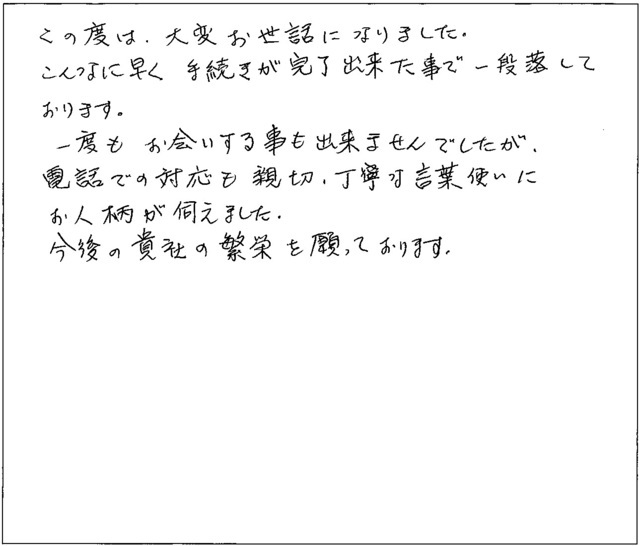 この度は、大変お世話になりました。
こんなに早く 手続きが完了出来た事で一段落して
おります。
一度も お会いする事も出来ませんでしたが、
電話での対応も 親切、丁寧な言葉使いに
お人柄が伺えました。
今後の貴社の繁栄を願っております。